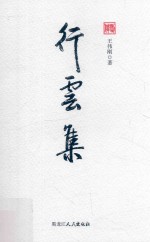 王伟刚◎著
行雲集
黑龙江人民出版社